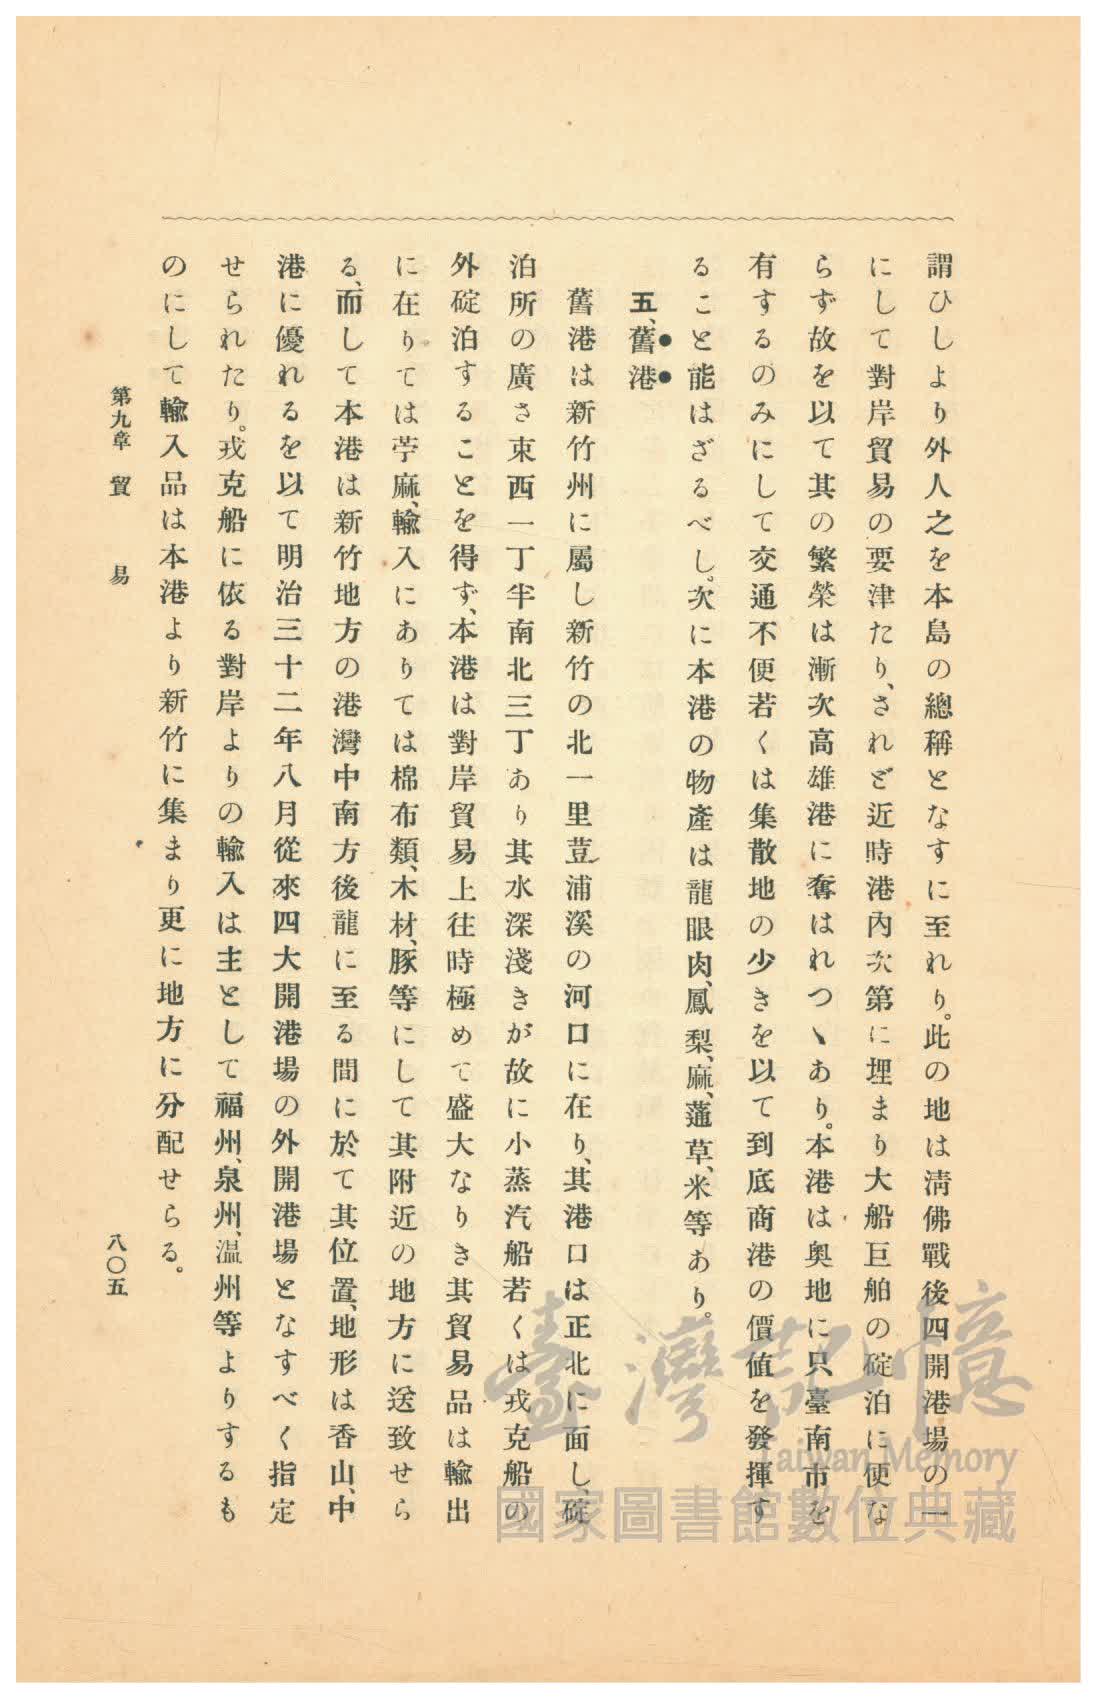 謂ひしより外人之を本島の總稱となすに至れり。此の地は淸佛戰後四開港場の一
にして對岸貿易の要津たり、されど近時港內次第に埋まり大船巨舶の碇泊に便な
らず故を以て其の繁榮は漸次高雄港に奪はれつゝあり。本港は奥地に只臺南市を
有するのみにして交通不便若くは集散地の少きを以て到底商港の價値を發揮す
ること能はざるべし。次に本港の物產は龍眼肉、鳳梨、麻、蓪草、米等あり。
五、舊港
舊港は新竹州に屬し新竹の北一里荳浦溪の河口に在り、其港口は正北に面し、碇
泊所の廣さ東西一丁半南北三丁あり其水深淺きが故に小蒸汽船若くは戎克船の
外碇泊することを得ず、本港は對岸貿易上往時極めて盛大なりき其貿易品は輸出
に在りては苧麻、輸入にありては棉布類、木材、豚等にして其附近の地方に送致せら
る、而して本港は新竹地方の港灣中南方後龍に至る間に於て其位置、地形は香山、中
港に優れるを以て明治三十二年八月從來四大開港場の外開港場となすべく指定
せられたり。戎克船に依る對岸よりの輸入は主として福州、泉州、溫州等よりするも
のにして輸入品は本港より新竹に集まり更に地方に分配せらる。
第九章 貿易
八〇五
臺灣記憶
Taiwan Memory
國家圖書館數位典藏